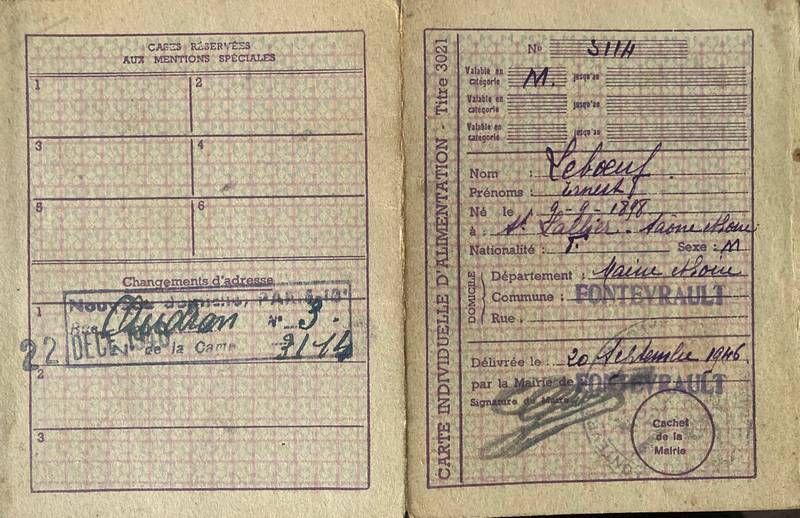 CASES RÉSERVÉES
AUX MENTIONS SPÉCIALES
1
2
3
4
5
6
Changements d'adresse
1
Nouveau domicile, PARIS 18e
Rue Audran N° 3.
22 DECE 1946
N° de la Carte 3114
2
3
CARTE INDIVIDUELLE D'ALIMENTATION - Titre 3021
No 3114
Valable en catégorie M. jusqu'au
Valable en catégorie jusqu'au
Valable en catégorie jusqu'au
Nom : Leboeuf
Prénoms : Ernest
Né le 9-9-1898
à St Vallier. Saône & Loire
Nationalité : F. Sexe : M
DOMICILE
Département : Maine & Loire
Commune : FONTEVRAULT
Rue :
Délivrée le 20 Septembre 1946
par la Mairie de FONTEVRAULT
Signature du Maire
Cachet
de la
Mairie